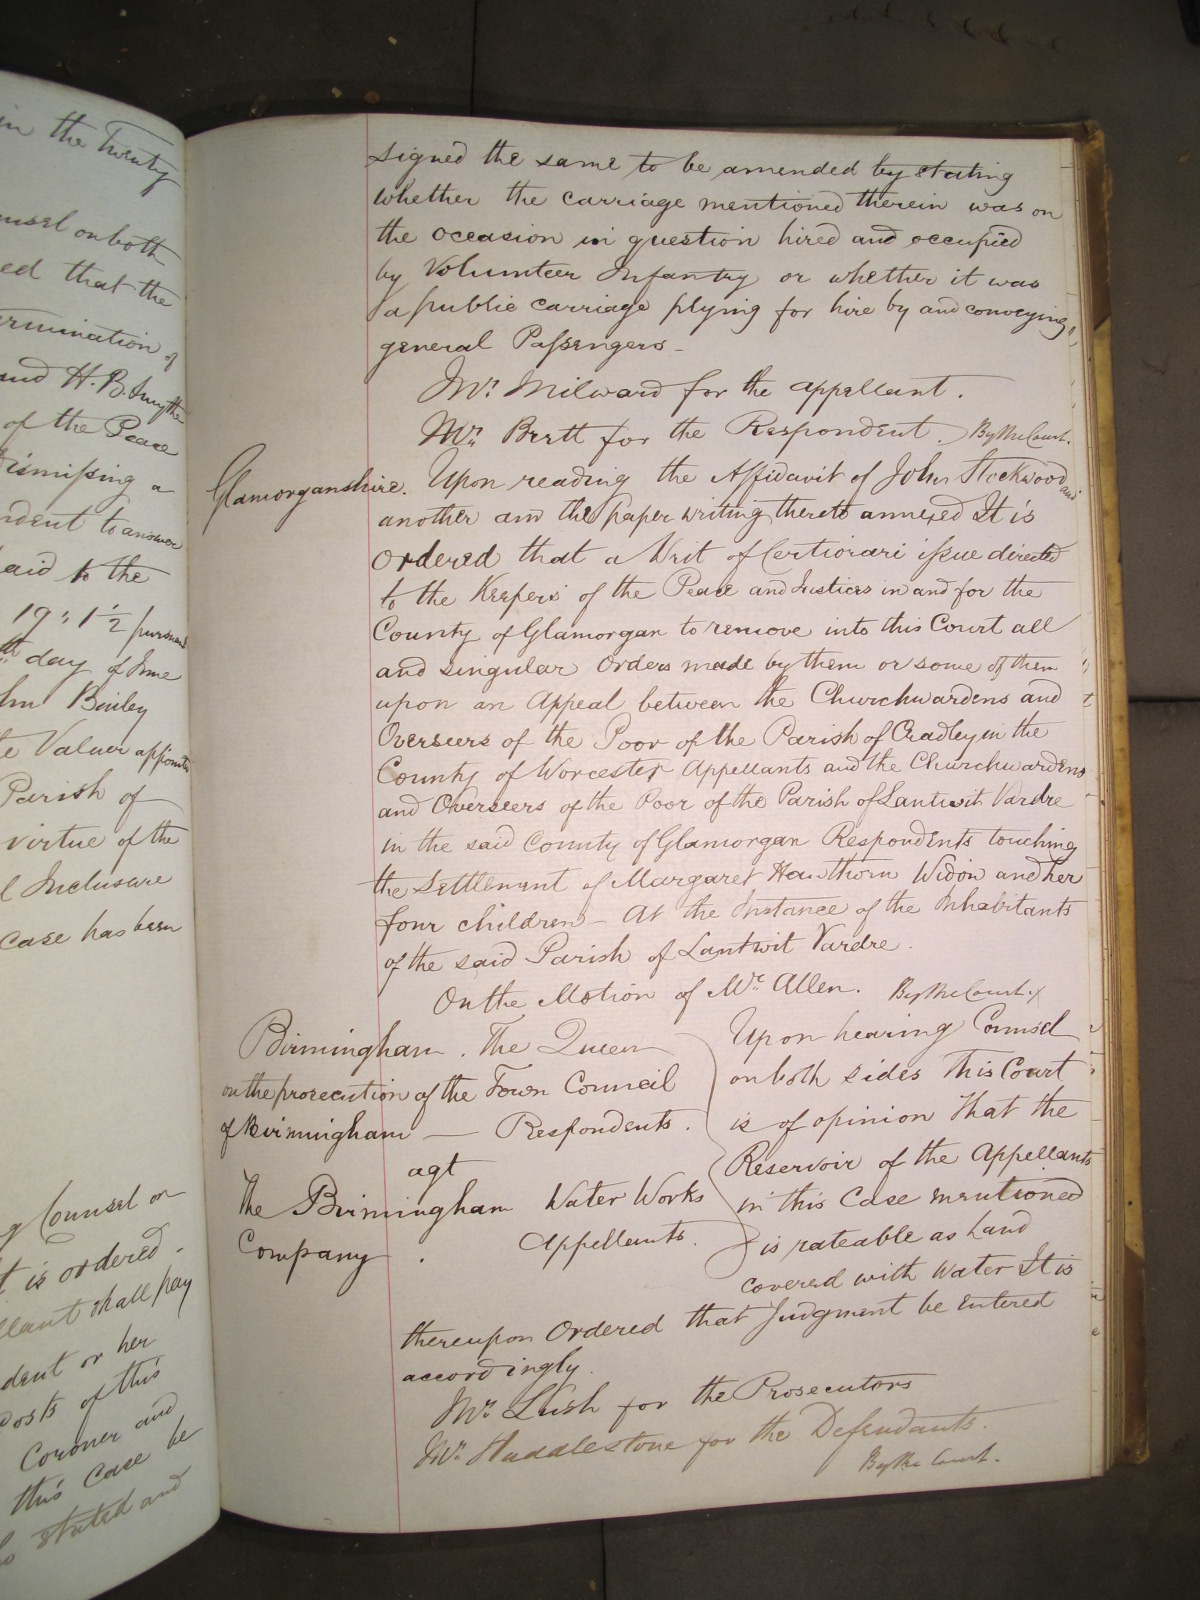 in the Twenty
Counsel on both
ed that the
ermination of
and H. B. Smythe
of the Peace
dismissing a
ndent to answer
aid to the
19 : 1½ pursuant
day of June
hn Binley
te Valuer appointed
Parish of
virtue of the
l Inclosure
Case has been
g Counsel on
t is ordered
llant shall pay
dent or her
Costs of this
Coroner and
this Case be
so stated and
signed the same to be amended by stating
whether the carriage mentioned therein was on
the occasion in question hired and occupied
by Volunteer Infantry or whether it was
a public carriage plying for hire by and conveying
general Passengers –
Mr. Milward for the appellant.
Mr. Brett for the Respondent. By the Court.
Glamorganshire. Upon reading the Affidavit of John Stockwood and
another and the paper writing thereto annexed It is
Ordered that a Writ of Certiorari issue directed
to the Keepers of the Peace and Justices in and for the
County of Glamorgan to remove into this Court all
and singular Orders made by them or some of them
upon an Appeal between the Churchwardens and
Overseers of the Poor of the Parish of Cradley in the
County of Worcester Appellants and the Churchwardens
and Overseers of the Poor of the Parish of Lantwit Vardre
in the said County of Glamorgan Respondents touching
the Settlement of Margaret Hawthorn Widow and her
four children – At the Instance of the Inhabitants
of the said Parish of Lantwit Vardre.
On the Motion of Mr. Allen. By the Court.
Birmingham. The Queen
on the prosecution of the Town Council
of Birmingham — Respondents.
agt
The Birmingham Water Works
Company . Appellants.
Upon hearing Counsel
on both sides This Court
is of opinion That the
Reservoir of the Appellants
in this Case mentioned
is rateable as Land
covered with Water It is
thereupon Ordered that Judgment be Entered
accordingly.
Mr. Lush for the Prosecutors
Mr. Huddlestone for the Defendants.
By the Court.